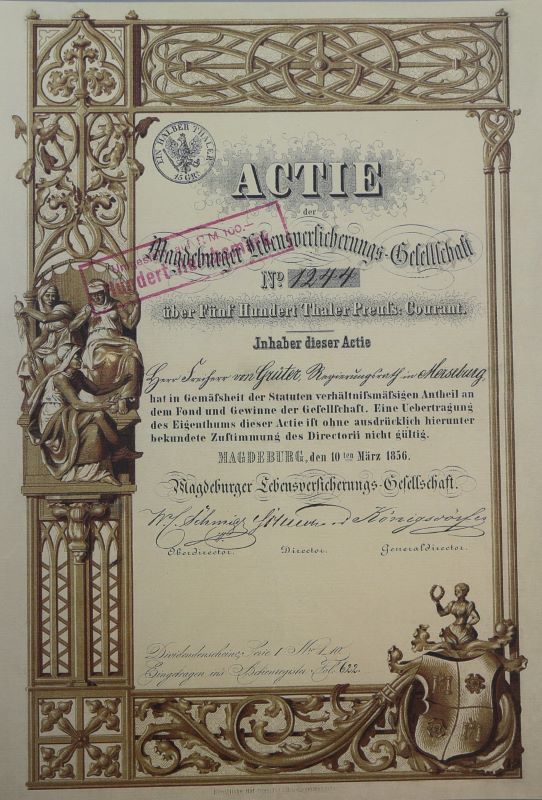 EIN HALBER THALER
15 GR.
ACTIE
der
Magdeburger Lebensversicherungs-Gesellschaft
RM 100.—
Hundert Reichsmark
No 1244
über Fünf Hundert Thaler Preuſs: Courant.
Inhaber dieser Actie
Herr Freiherr von Gruter, Regierungsrath in Merseburg
hat in Gemäſsheit der Statuten verhältniſsmäſsigen Antheil an
dem Fond und Gewinne der Geſellſchaft. Eine Uebertragung
des Eigenthums dieser Actie iſt ohne ausdrücklich hierunter
bekundete Zuſtimmung des Directorii nicht gültig.
MAGDEBURG, den 10ten März 1856.
Magdeburger Lebensversicherungs-Gesellschaft.
Schmidt Königsdörfer
Oberdirector. Director. Generaldirector.
Dividendenscheine Serie 1 No 1-10
Eingetragen im Actienregister Fol. 622